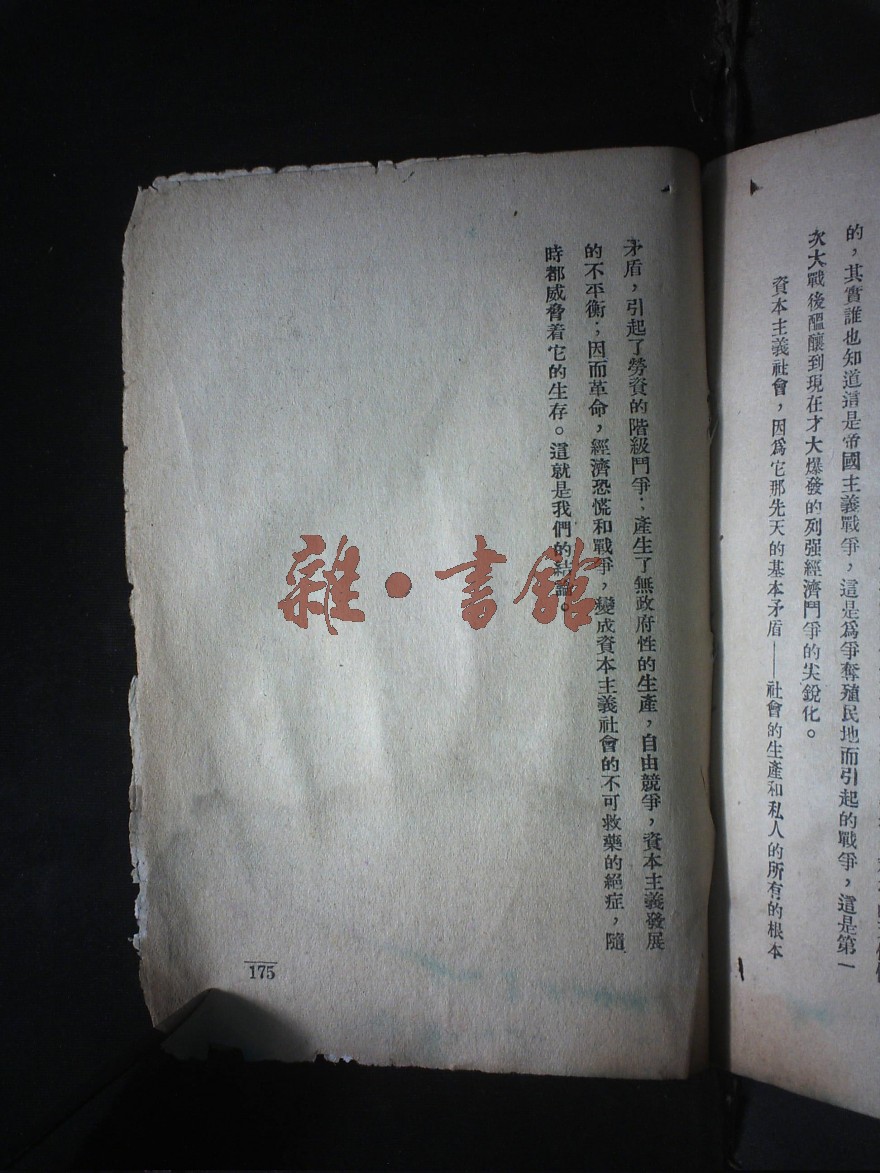 的，其實誰也知道這是帝國主義戰爭，這是爲爭奪殖民地而引起的戰爭，這是第一
次大戰後醞釀到現在才大爆發的列强經濟鬥爭的尖銳化。
資本主義社會，因爲它那先天的基本矛盾——社會的生產和私人的所有的根本
矛盾，引起了勞資的階級鬥爭；產生了無政府性的生產，自由競爭，資本主義發展
的不平衡；因而革命，經濟恐慌和戰爭，變成資本主義社會的不可救藥的絕症，隨
時都威脅着它的生存。這就是我們的結論。
175
雜·書館